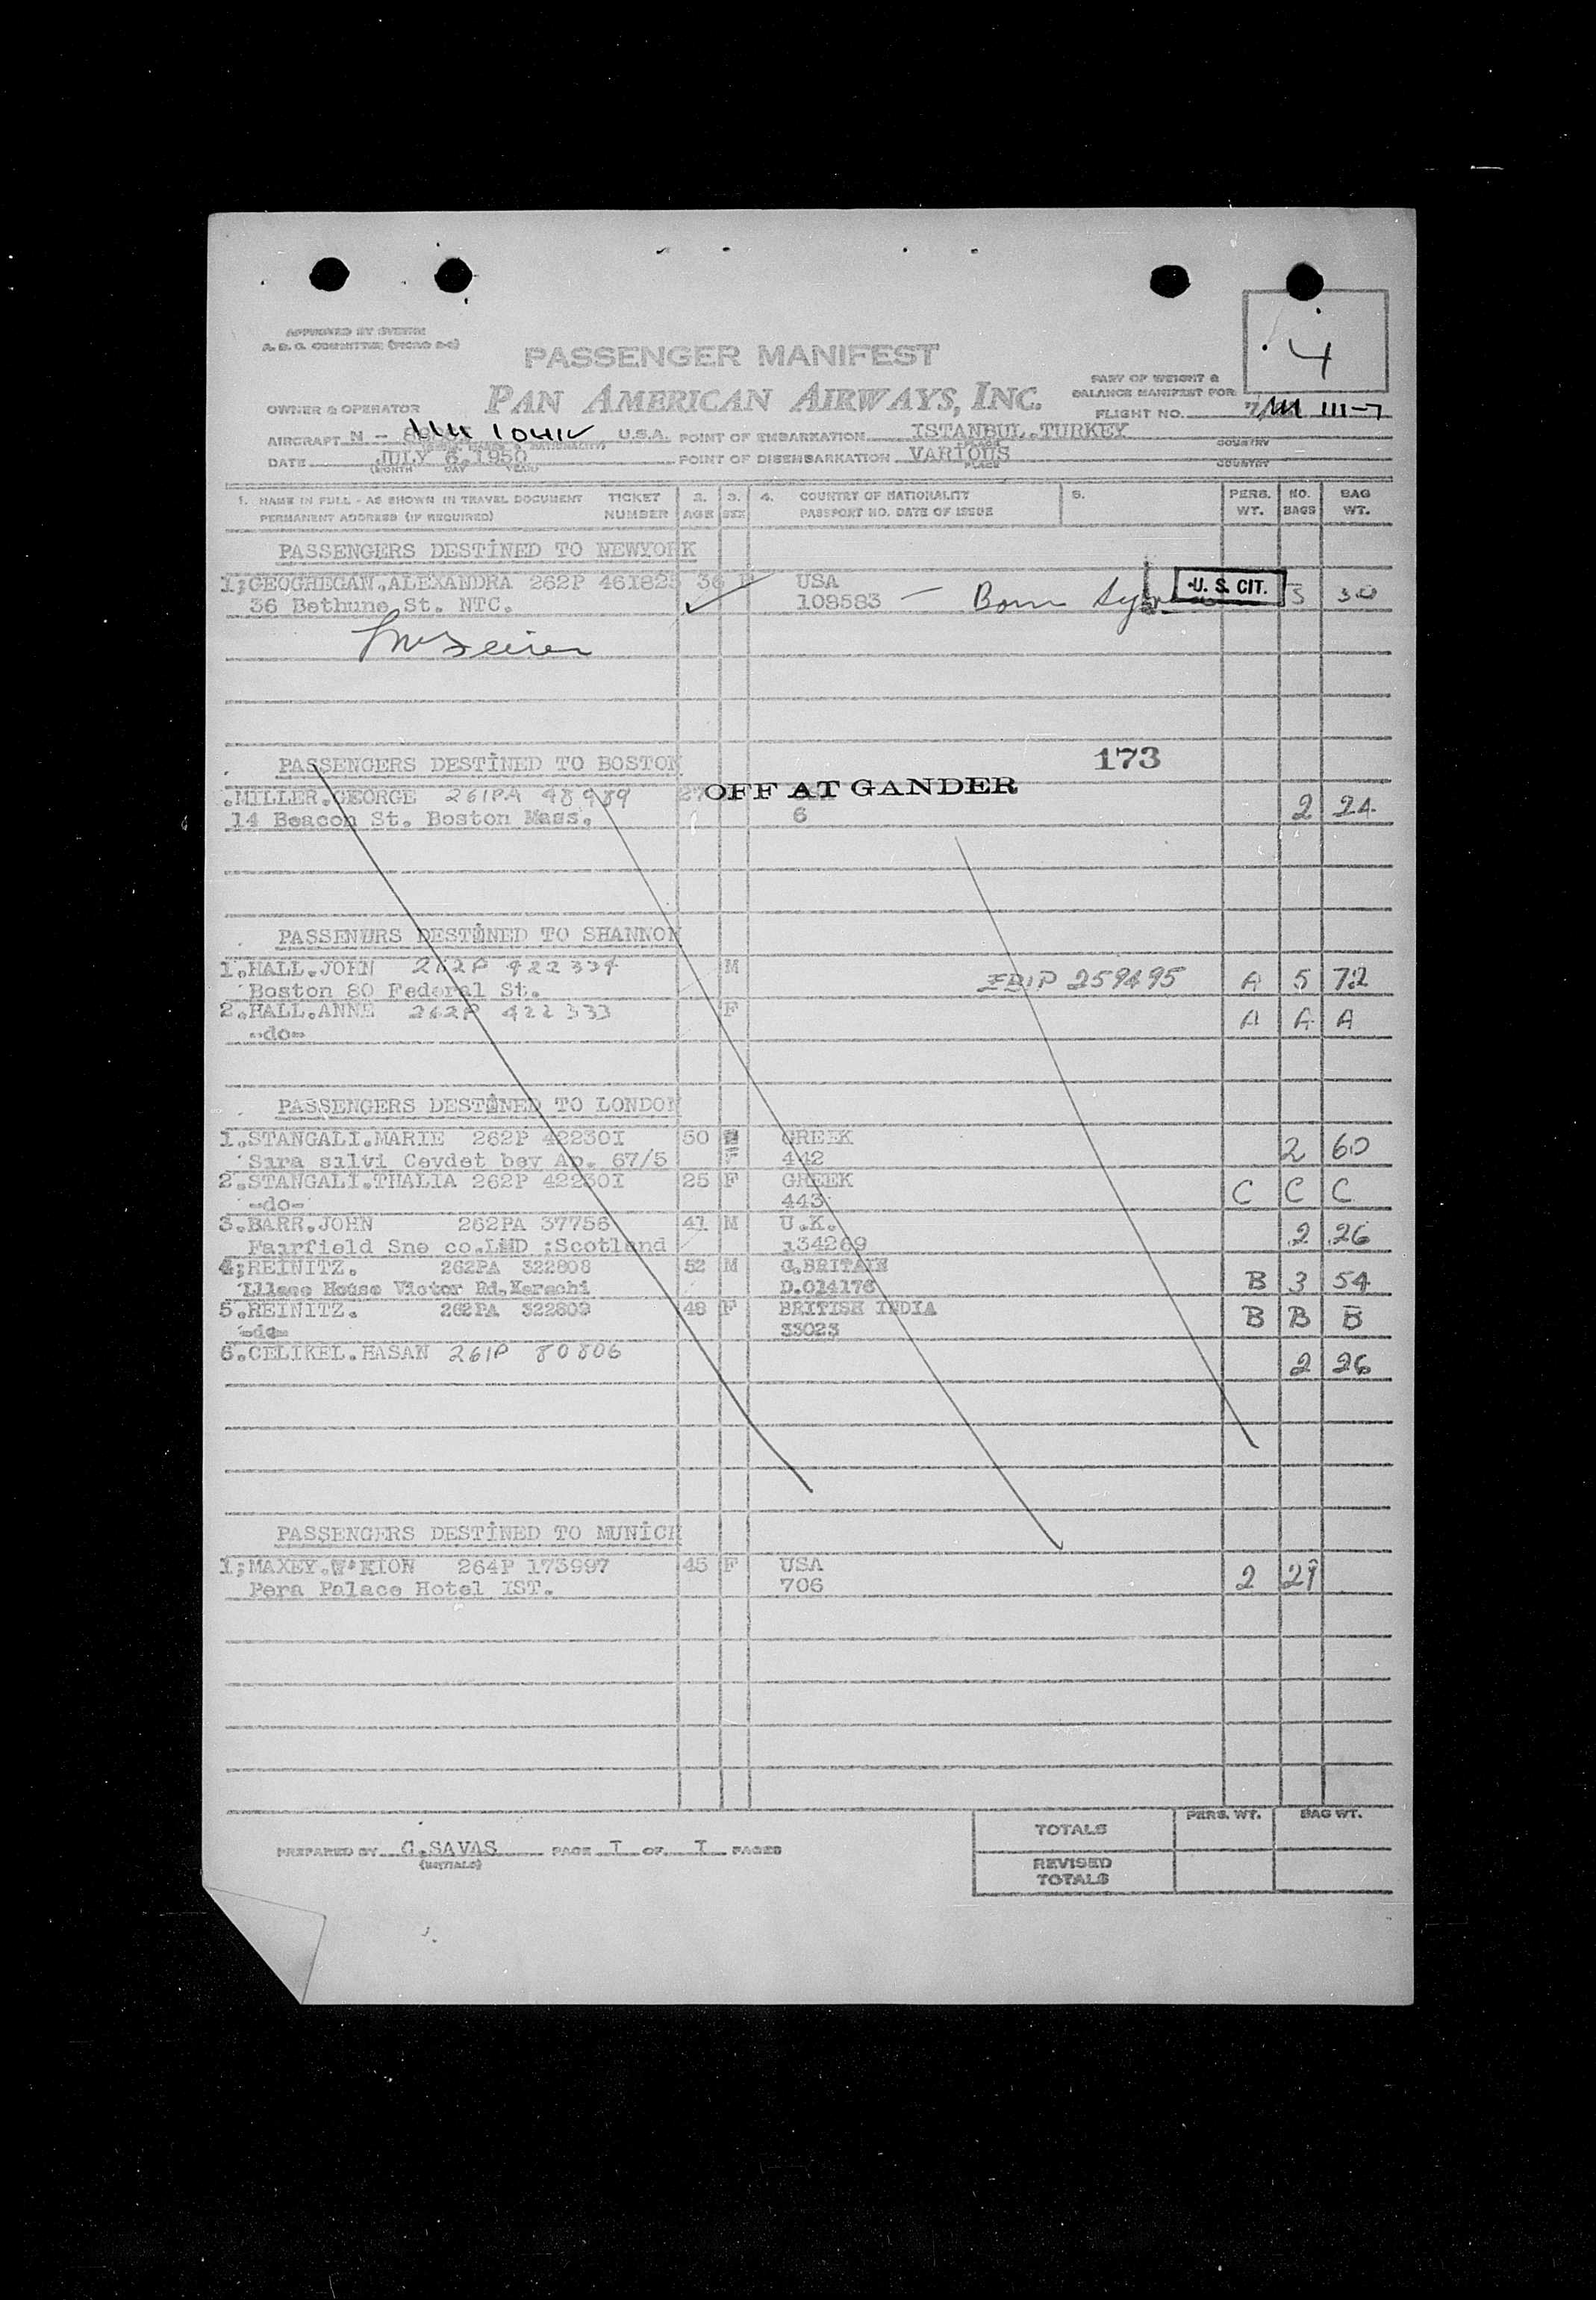 4
APPROVED BY SYSTEM
PASSENGER MANIFEST
PAN AMERICAN AIRWAYS, INC.
PART OF WEIGHT &
BALANCE MANIFEST FOR
OWNER & OPERATOR
FLIGHT NO. 111-7
AIRCRAFT N - 1041V U.S.A. POINT OF EMBARKATION ISTANBUL.TURKEY
PLACE COUNTRY
DATE JULY 6.1950 POINT OF DISEMBARKATION VARIOUS
(MONTH DAY YEAR) PLACE COUNTRY
1. NAME IN FULL - AS SHOWN IN TRAVEL DOCUMENT TICKET 2. 3. 4. COUNTRY OF NATIONALITY 5. PERS. NO. BAG
PERMANENT ADDRESS (IF REQUIRED) NUMBER AGE SEX PASSPORT NO. DATE OF ISSUE WT. BAGS WT.
PASSENGERS DESTİNED TO NEWYORK
1;GEOGHEGAN.ALEXANDRA 262P 461825 36 USA U. S. CIT.
36 Bethune St. NTC. 108583 — Born 3 30
173
PASSENGERS DESTİNED TO BOSTON
OFF AT GANDER
.MILLER.GEORGE 261PA 48989 27 2 24
14 Beacon St. Boston Mass. 6
PASSENURS DESTİNED TO SHANNON
1.HALL.JOHN 262P 422334 M EBIP 259495 A 5 72
Boston 80 Federal St.
2.HALL.ANNE 262P 422333 F A A A
-do-
PASSENGERS DESTİNED TO LONDON
1.STANGALI.MARIE 262P 422301 50 F GREEK 2 60
Sıra silvi Cevdet bey Ap. 67/5 442
2.STANGALI.THALIA 262P 42230I 25 F GREEK C C C
-do- 443
3.BARR.JOHN 262PA 37756 41 M U.K. 2 26
Fairfield Sne co.LMD ;Scotland 134269
4;REINITZ. 262PA 322808 52 M G.BRITAIN B 3 54
House Victor Rd.Karachi D.014176
5.REINITZ. 262PA 322809 48 F BRITISH INDIA B B B
-do- 33023
6.CELIKEL.HASAN 261P 80806 2 26
PASSENGERS DESTİNED TO MUNİCH
1;MAXEY.W.RION 264P 173997 45 F USA 2 29
Pera Palace Hotel IST. 706
PERS. WT. BAG WT.
TOTALS
PREPARED BY G.SAVAS PAGE I OF I PAGES
(INITIALS)
REVISED
TOTALS